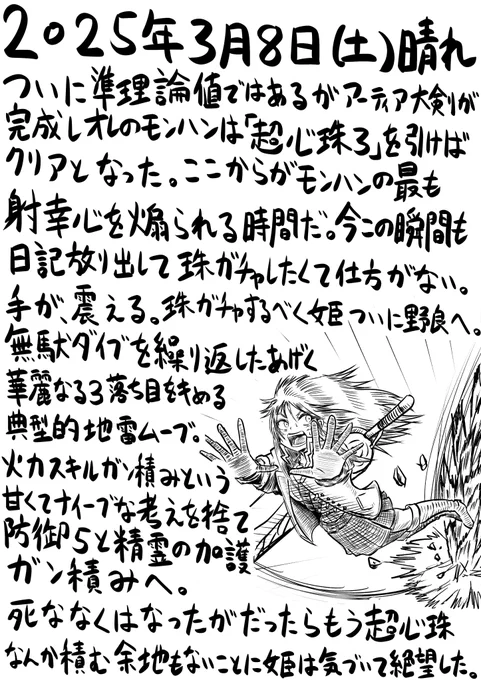 2025年3月8日(土)晴れ
ついに準理論値ではあるがアーティア大剣が
完成しオレのモンハンは「超心珠3」を引けば
クリアとなった。ここからがモンハンの最も
射幸心を煽られる時間だ。今この瞬間も
日記放り出して珠ガチャしたくて仕方がない。
手が、震える。珠ガチャするべく姫ついに野良へ。
無駄ダイブを繰り返したあげく
華麗なる3落ち目をキめる
典型的地雷ムーブ。
火力スキルガン積みという
甘くてナイーブな考えを捨て
防御5と精霊の加護
ガン積みへ。
死ななくはなったがだったらもう超心珠
なんか積む余地もないことに姫は気づいて絶望した。